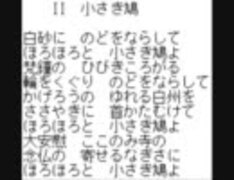 II 小さき鳩
白砂に のどをならして
ほろほろと 小さき鳩よ
梵鐘の ひびきころがる
輪をくぐり のどをならして
かげろうの ゆれる白州を
ささやきに 首かたむけて
ほろほろと 小さき鳩よ
大安慰 ここのみ寺の
念仏の 寄せるなぎさに
ほろほろと 小さき鳩よ